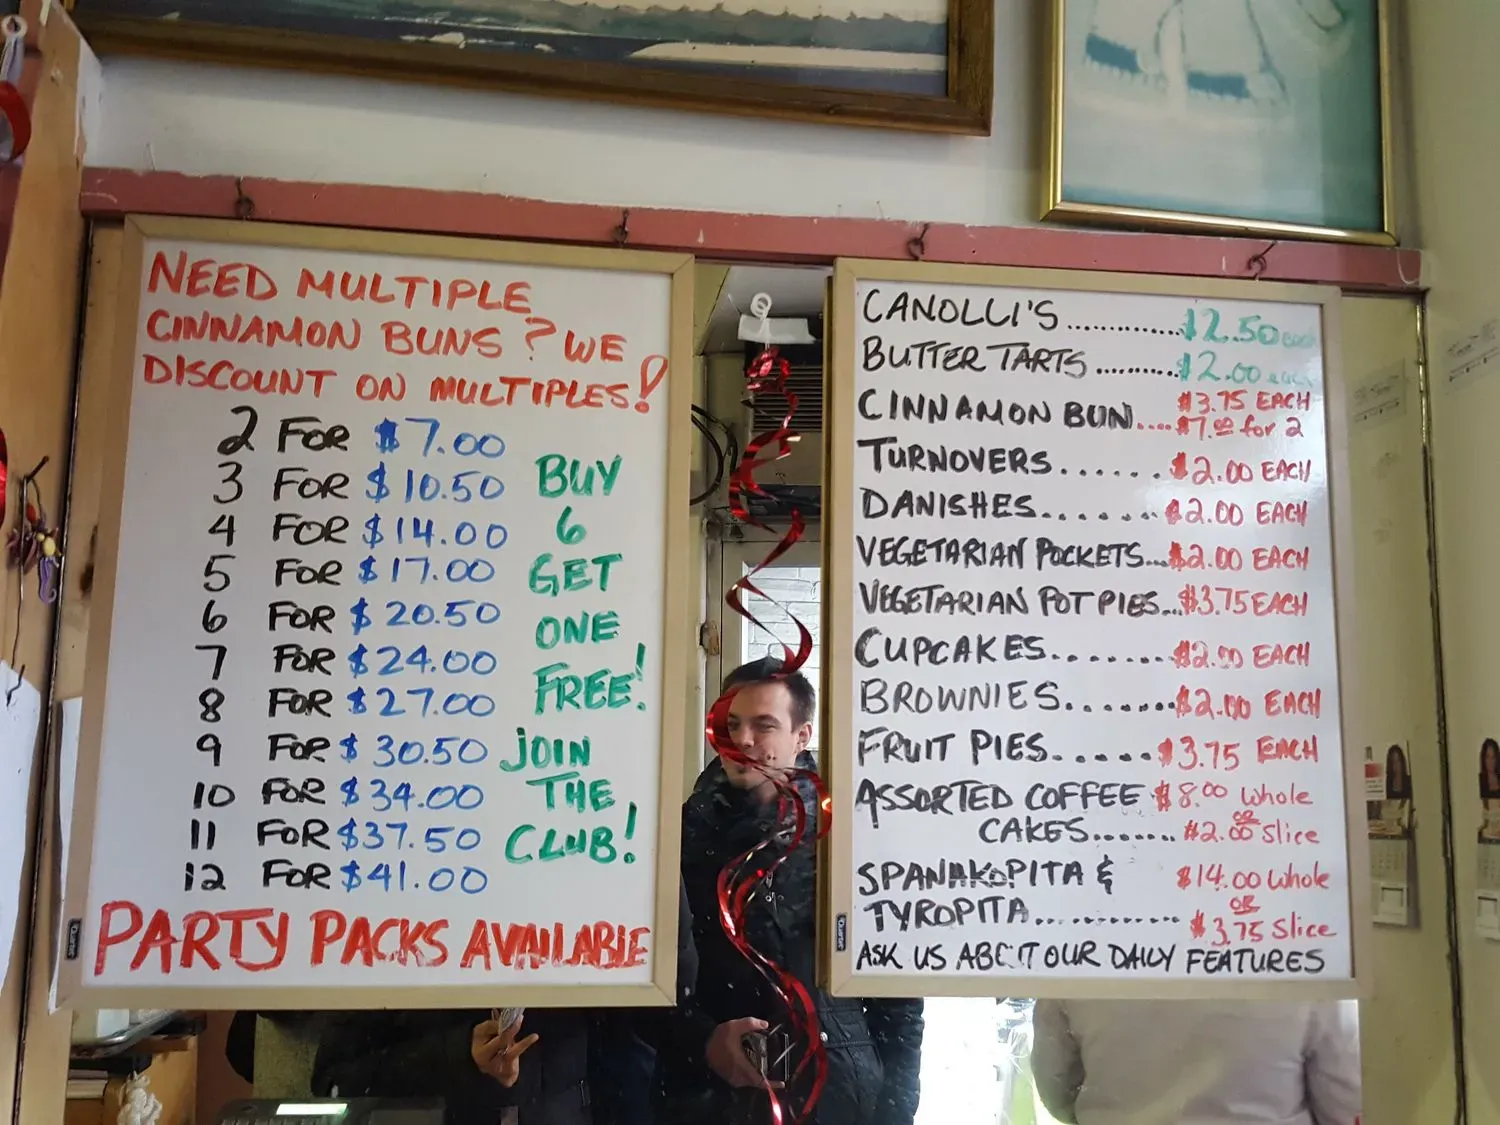 NEED MULTIPLE
CINNAMON BUNS? WE
DISCOUNT ON MULTIPLES!
2 FOR $7.00
3 FOR $10.50
4 FOR $14.00
5 FOR $17.00
6 FOR $20.50
7 FOR $24.00
8 FOR $27.00
9 FOR $30.50
10 FOR $34.00
11 FOR $37.50
12 FOR $41.00
BUY
6
GET
ONE
FREE!
JOIN
THE
CLUB!
PARTY PACKS AVAILABLE
CANOLLI'S..............$2.50 each
BUTTER TARTS..........$2.00 each
CINNAMON BUN....$3.75 EACH
$7.00 for 2
TURNOVERS......$2.00 EACH
DANISHES.......$2.00 EACH
VEGETARIAN POCKETS...$2.00 EACH
VEGETARIAN POT PIES...$3.75 EACH
CUPCAKES.......$2.00 EACH
BROWNIES.......$2.00 EACH
FRUIT PIES......$3.75 EACH
ASSORTED COFFEE $8.00 whole
OR
CAKES.......$2.00 Slice
SPANAKOPITA & $14.00 whole
OR
TYROPITA.............$3.75 Slice
ASK US ABOUT OUR DAILY FEATURES
Quartet